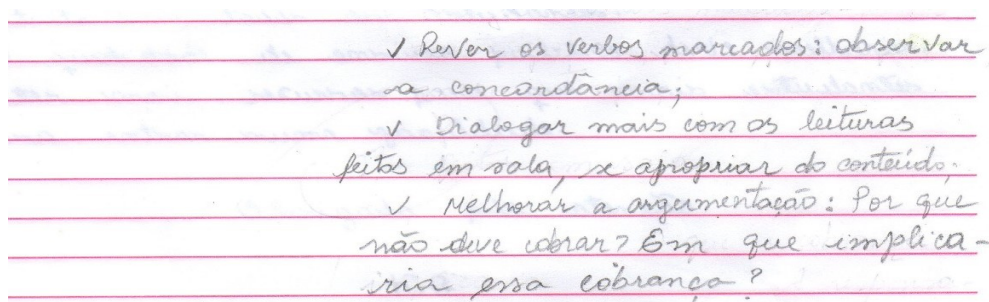 ✓ Rever os verbos marcados: observar
a concordância;
✓ Dialogar mais com as leituras
feitos em sala, se apropriar do conteúdo;
✓ Melhorar a argumentação: Por que
não deve cobrar? Em que implica-
ria essa cobrança?